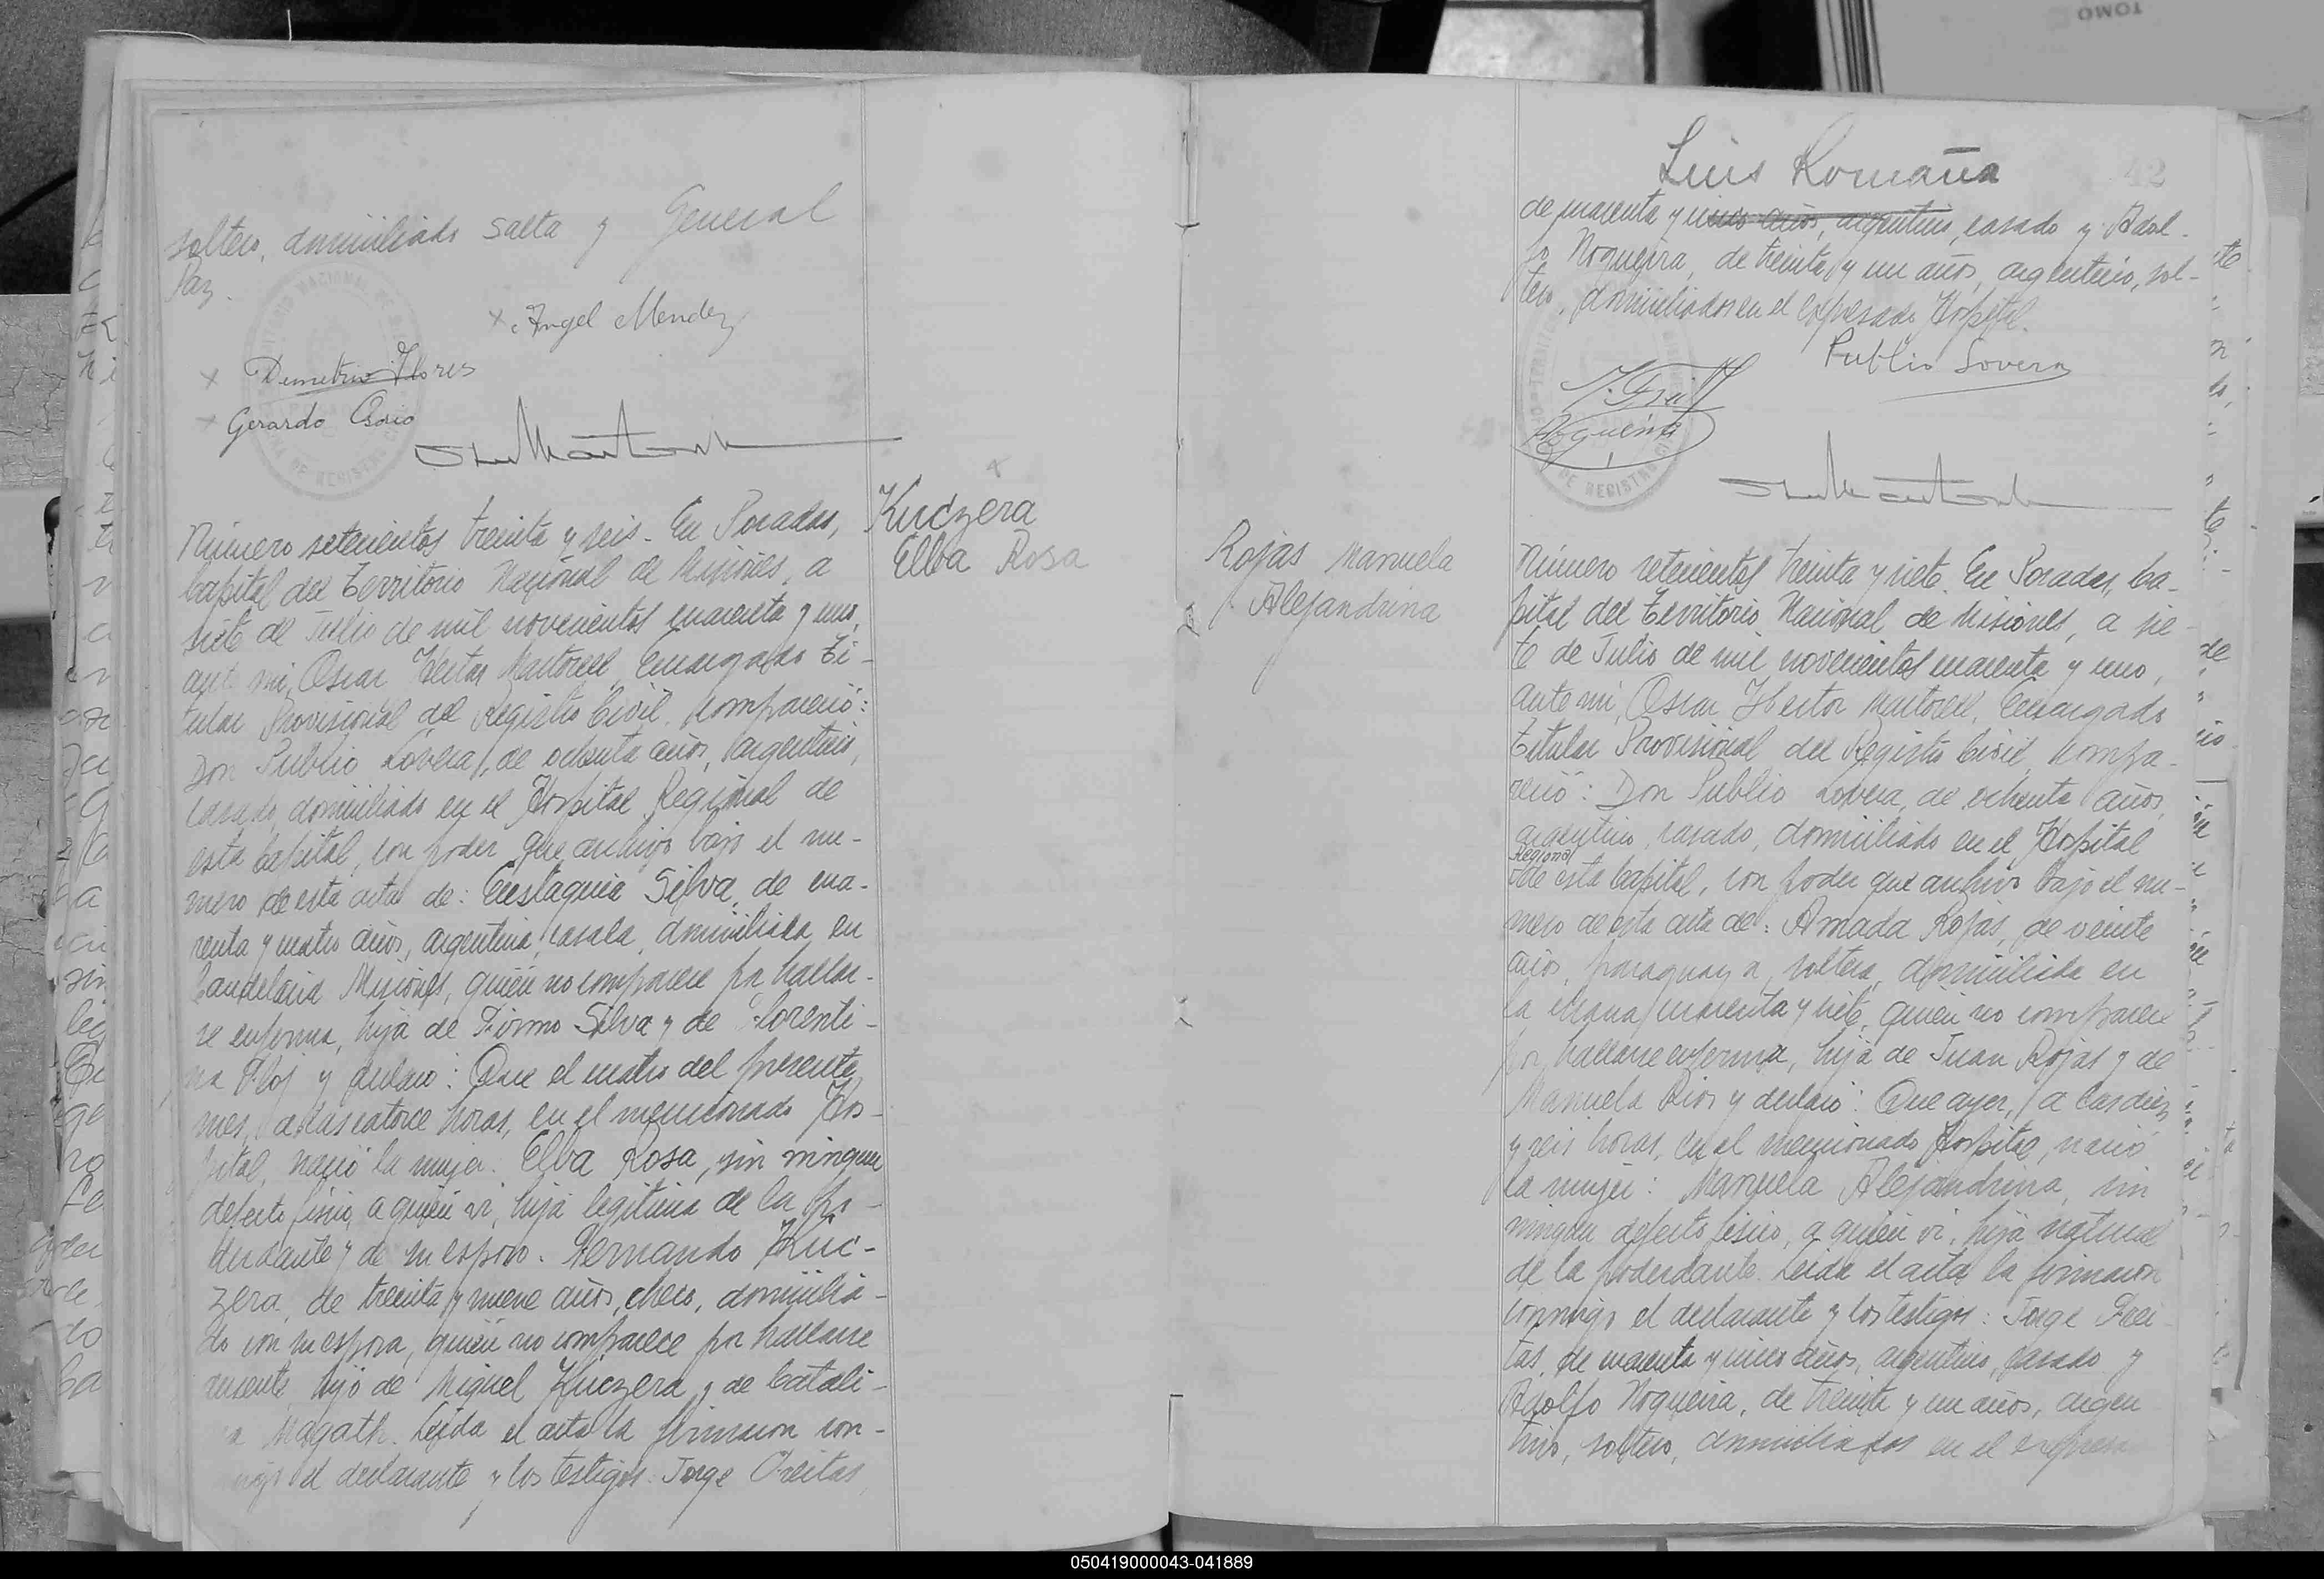 soltero, domiciliado Salta y General
Paz.
x Angel Mendez
x Demetrio Flores
x Gerardo Osorio
Número setecientos treinta y seis. En Posadas,
Capital del Territorio Nacional de Misiones, a
siete de Julio de mil novecientos cuarenta y uno,
ante mi, Oscar Hector Martorell, Encargado Ti-
tular Provisional del Registro Civil, compareció:
Don Publio Lovera, de ochenta años, argentino,
casado, domiciliado en el Hospital Regional de
esta Capital, con poder que archivo bajo el nu-
mero de esta acta de: Eustaquia Silva, de cua-
renta y cuatro años, argentina, casada, domiciliada en
Candelaria Misiones, quién no comparece por hallar-
se enferma, hija de Firmo Silva y de Florenti-
na y declaró: Que el cuatro del presente
mes, a las catorce horas, en el mencionado Hos-
pital, nació la mujer: Elba Rosa, sin ningun
defecto fisico, a quién vi, hija legitima de la po-
derdante y de su esposo: Fernando Kuc-
zera, de treinta y nueve años, checo, domicilia-
do con su esposa, quién no comparece por hallarse
ausente, hijo de Miguel Kuczera y de Catali-
na Magath. Leída el acta la firmaron con-
migo el declarante y los testigos: Jorge Freitas,
Kuczera
Elba Rosa
Luis Romaña
42
de cuarenta y cinco años, argentino, casado y Adol-
fo Nogueira, de treinta y un años, argentino, sol-
tero, domiciliados en el expresado Hospital.
Publio Lovera
Rojas Manuela
Alejandrina
Número setecientos treinta y siete. En Posadas, Ca-
pital del Territorio Nacional de Misiones, a sie-
te de Julio de mil novecientos cuarenta y uno,
ante mi, Oscar Hector Martorell, Encargado
Titular Provisional del Registro Civil, compa-
reció: Don Publio Lovera, de ochenta años,
argentino, casado, domiciliado en el Hospital
Regional
de esta Capital, con poder que archivo bajo el nu-
mero de esta acta de: Amada Rojas, de veinte
años, paraguaya, soltera, domiciliada en
la chacra cuarenta y siete, quién no comparece
por hallarse enferma, hija de Juan Rojas y de
Manuela Rios y declaró: Que ayer, a las diez
y seis horas, en el mencionado Hospital, nació
la mujer: Manuela Alejandrina, sin
ningun defecto fisico, a quién vi, hija natural
de la poderdante. Leída el acta la firmaron
conmigo el declarante y los testigos: Jorge Frei-
tas, de cuarenta y cinco años, argentino, casado y
Adolfo Nogueira, de treinta y un años, argen
tino, soltero, domiciliados en el expresa
TOMO
050419000043-041889